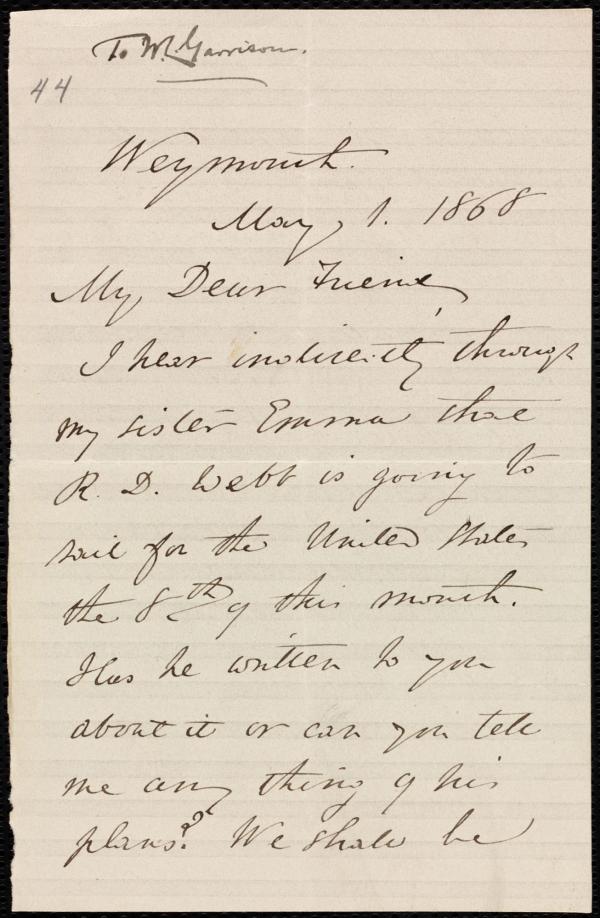 To W. L. Garrison.
44
Weymouth.
May, 1. 1868
My Dear Friend,
I hear indirectly through
my sister Emma that
R. D. Webb is going to
sail for the United States
the 8th of this month.
Has he written to you
about it or can you tell
me any thing of his
plans? We shall be